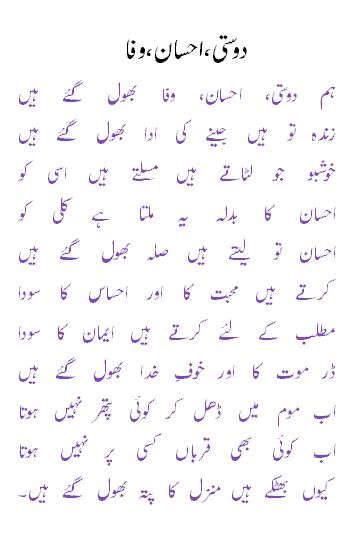 دوستی،احسان،وفا
ہم دوستی، احسان، وفا بھول گئے ہیں
زندہ تو ہیں جینے کی ادا بھول گئے ہیں
خوشبو جو لٹاتے ہیں مسلتے ہیں اسی کو
احسان کا بدلہ یہ ملتا ہے کلی کو
احسان تو لیتے ہیں صلہ بھول گئے ہیں
کرتے ہیں محبت کا اور احساس کا سودا
مطلب کے لئے کرتے ہیں ایمان کا سودا
ڈر موت کا اور خوفِ خدا بھول گئے ہیں
اب موم میں ڈھل کر کوئی پتھر نہیں ہوتا
اب کوئی بھی قرباں کسی پر نہیں ہوتا
کیوں بھٹکے ہیں منزل کا پتہ بھول گئے ہیں۔